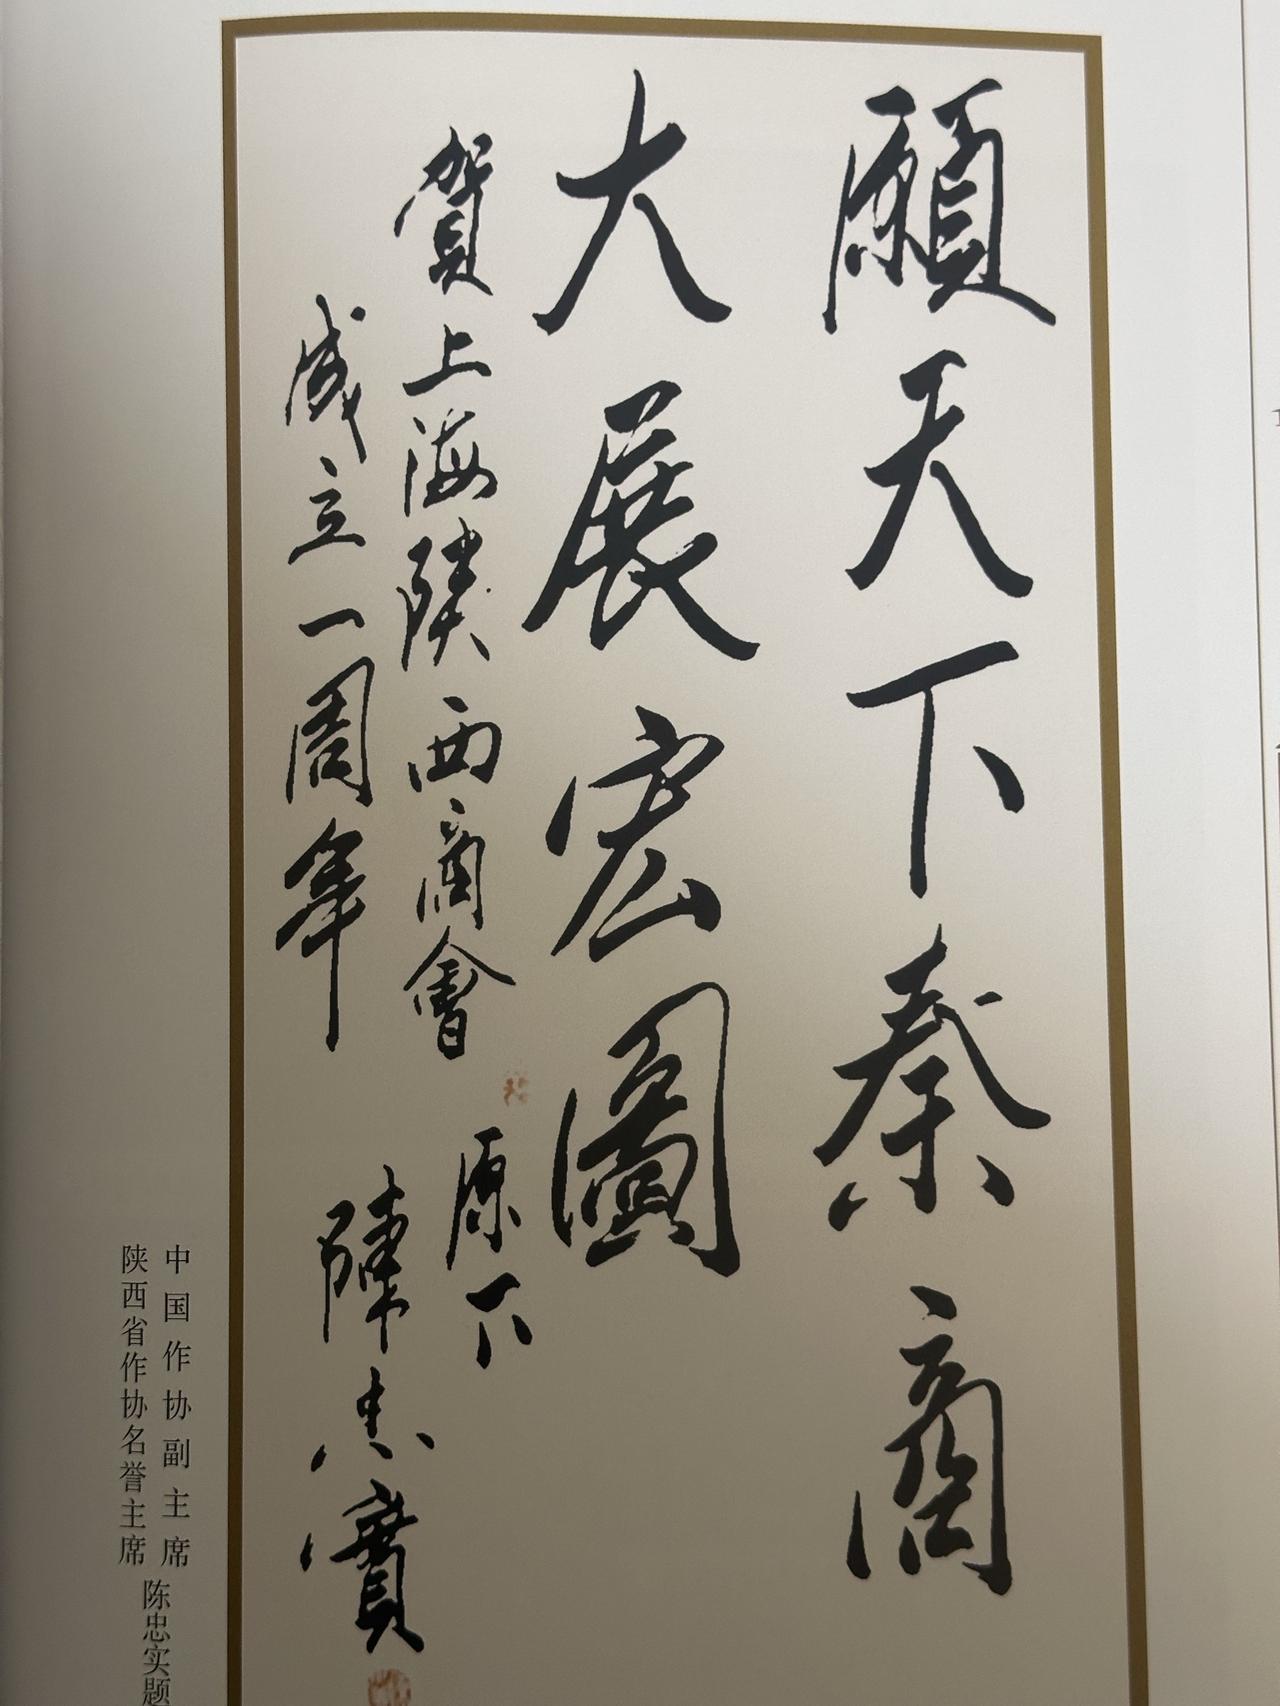 願天下秦商
大展宏圖
賀上海陝西商會
成立一周年
原下
陳忠實
中国作协副主席
陕西省作协名誉主席
陈忠实题